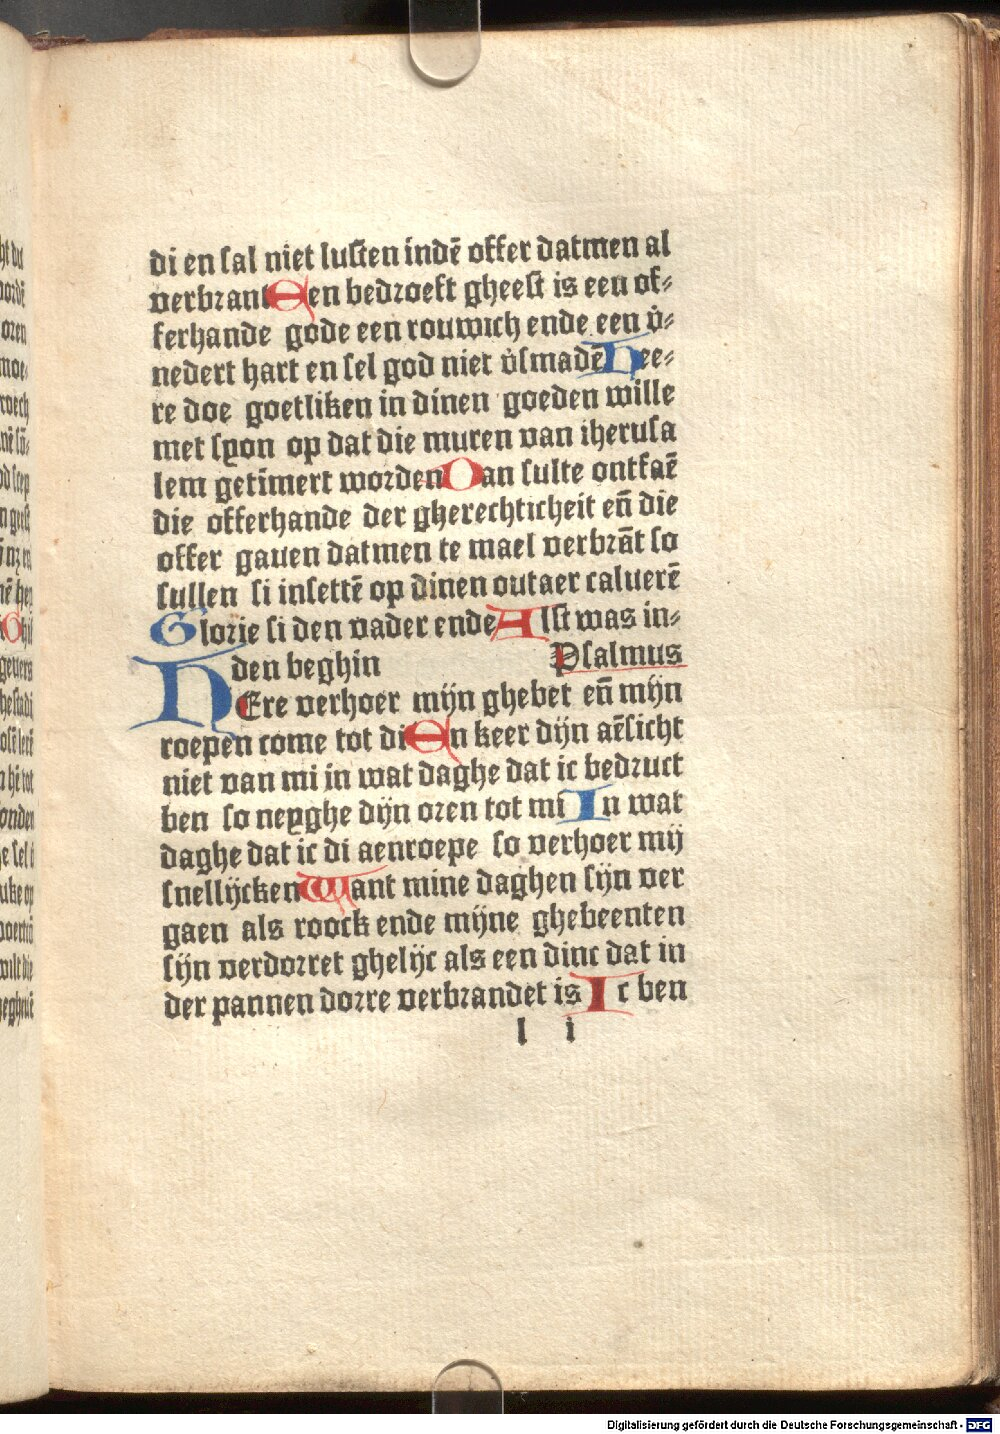 di en sal niet lusten indē offer datmen al
verbrant Een bedroeft gheest is een of⸗
ferhande gode een rouwich ende een v̾⸗
nedert hart en sel god niet v̾smadē Hee⸗
re doe goetliken in dinen goeden wille
met syon op dat die muren van iherusa
lem getīmert worden Dan sulte ontfaē
die offerhande der gherechticheit eñ die
offer gauen datmen te mael verbrāt so
sullen si insettē op dinen outaer caluerē
Glorie si den vader ende Alst was in⸗
den beghin Psalmus
HEre verhoer mijn ghebet eñ mijn
roepen come tot di En keer dijn aēsicht
niet van mi in wat daghe dat ic bedruct
ben so neyghe dijn oren tot mi In wat
daghe dat ic di aenroepe so verhoer mij
snellijcken Want mine daghen sijn ver
gaen als roock ende mijne ghebeenten
sijn verdorret ghelijc als een dinc dat in
der pannen dorre verbrandet is Ic ben
l i
Digitalisierung gefördert durch die Deutsche Forschungsgemeinschaft - DFG